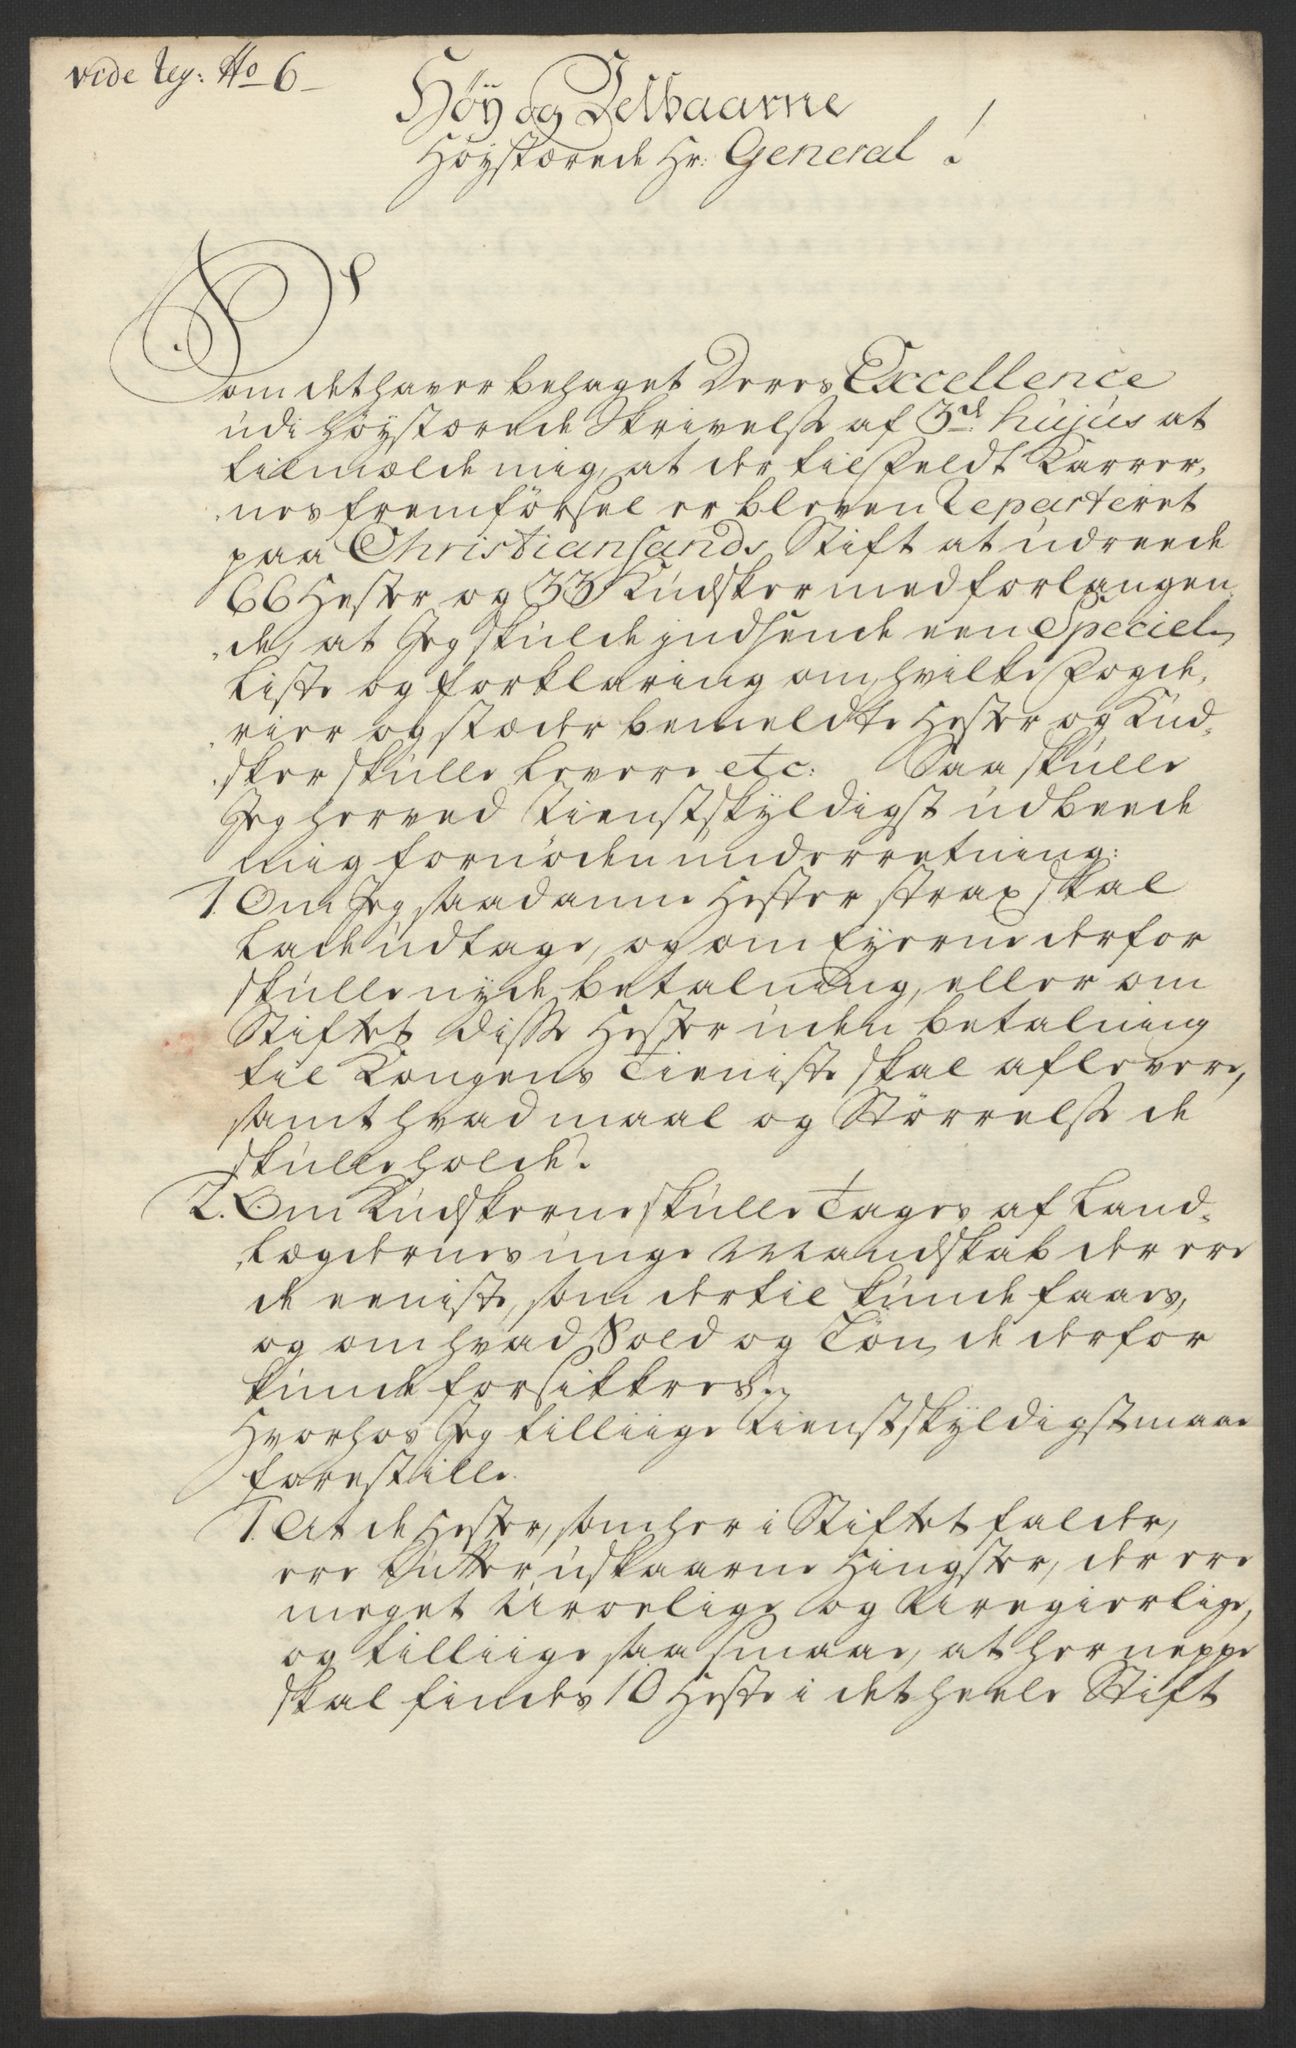 vide Reg: No 6
Høy og Velbaarne
Høystærede Hr: General!
Som det haver behaget Deres Excellence
udi høystærede Skrivelse af 3de hujus at
tilmælde mig, at der til Feldt Karrer,
nes fremførsel er bleven Reparteret
paa Christiansands Stift at udreede
66 Hester og 33 Kudsker med forlangen,
,de, at Jeg skulde jndsende een Speciel
Liste og forklaring om, hvilke Fogde,
,rier og stæder bemeldte Hester og Kud,
,sker skulle levere etc: Saa skulle
Jeg herved tienstskyldigst udbeede
mig fornøden underretning:
1. Om Jeg saadanne Hester strax skal
lade udtage, og om Eyerne derfor
skulle nyde betalning, eller om
Stiftet disse Hester uden betalning
til Kongens Tieniste skal aflevere,
samt hvad maal og Størrelse de
skulle holde.
2. Om Kudskerne skulle Tages af Land,
,Lægdernes unge Mandskab der ere
de eeniste, som dertil kunde faaes,
og om hvad Sold og Løn de derfor
kunde forsikkres.
Hvorhos Jeg tilliige tienstskyldigst maae
forestille.
1. At de Hester, som her i Stiftet falder,
ere Lutter uskaarne Hingster, der ere
meget Uroelige og Uregierlige,
og tilliige saa smaae, at her neppe
skal findes 10 Heste i det heele Stift